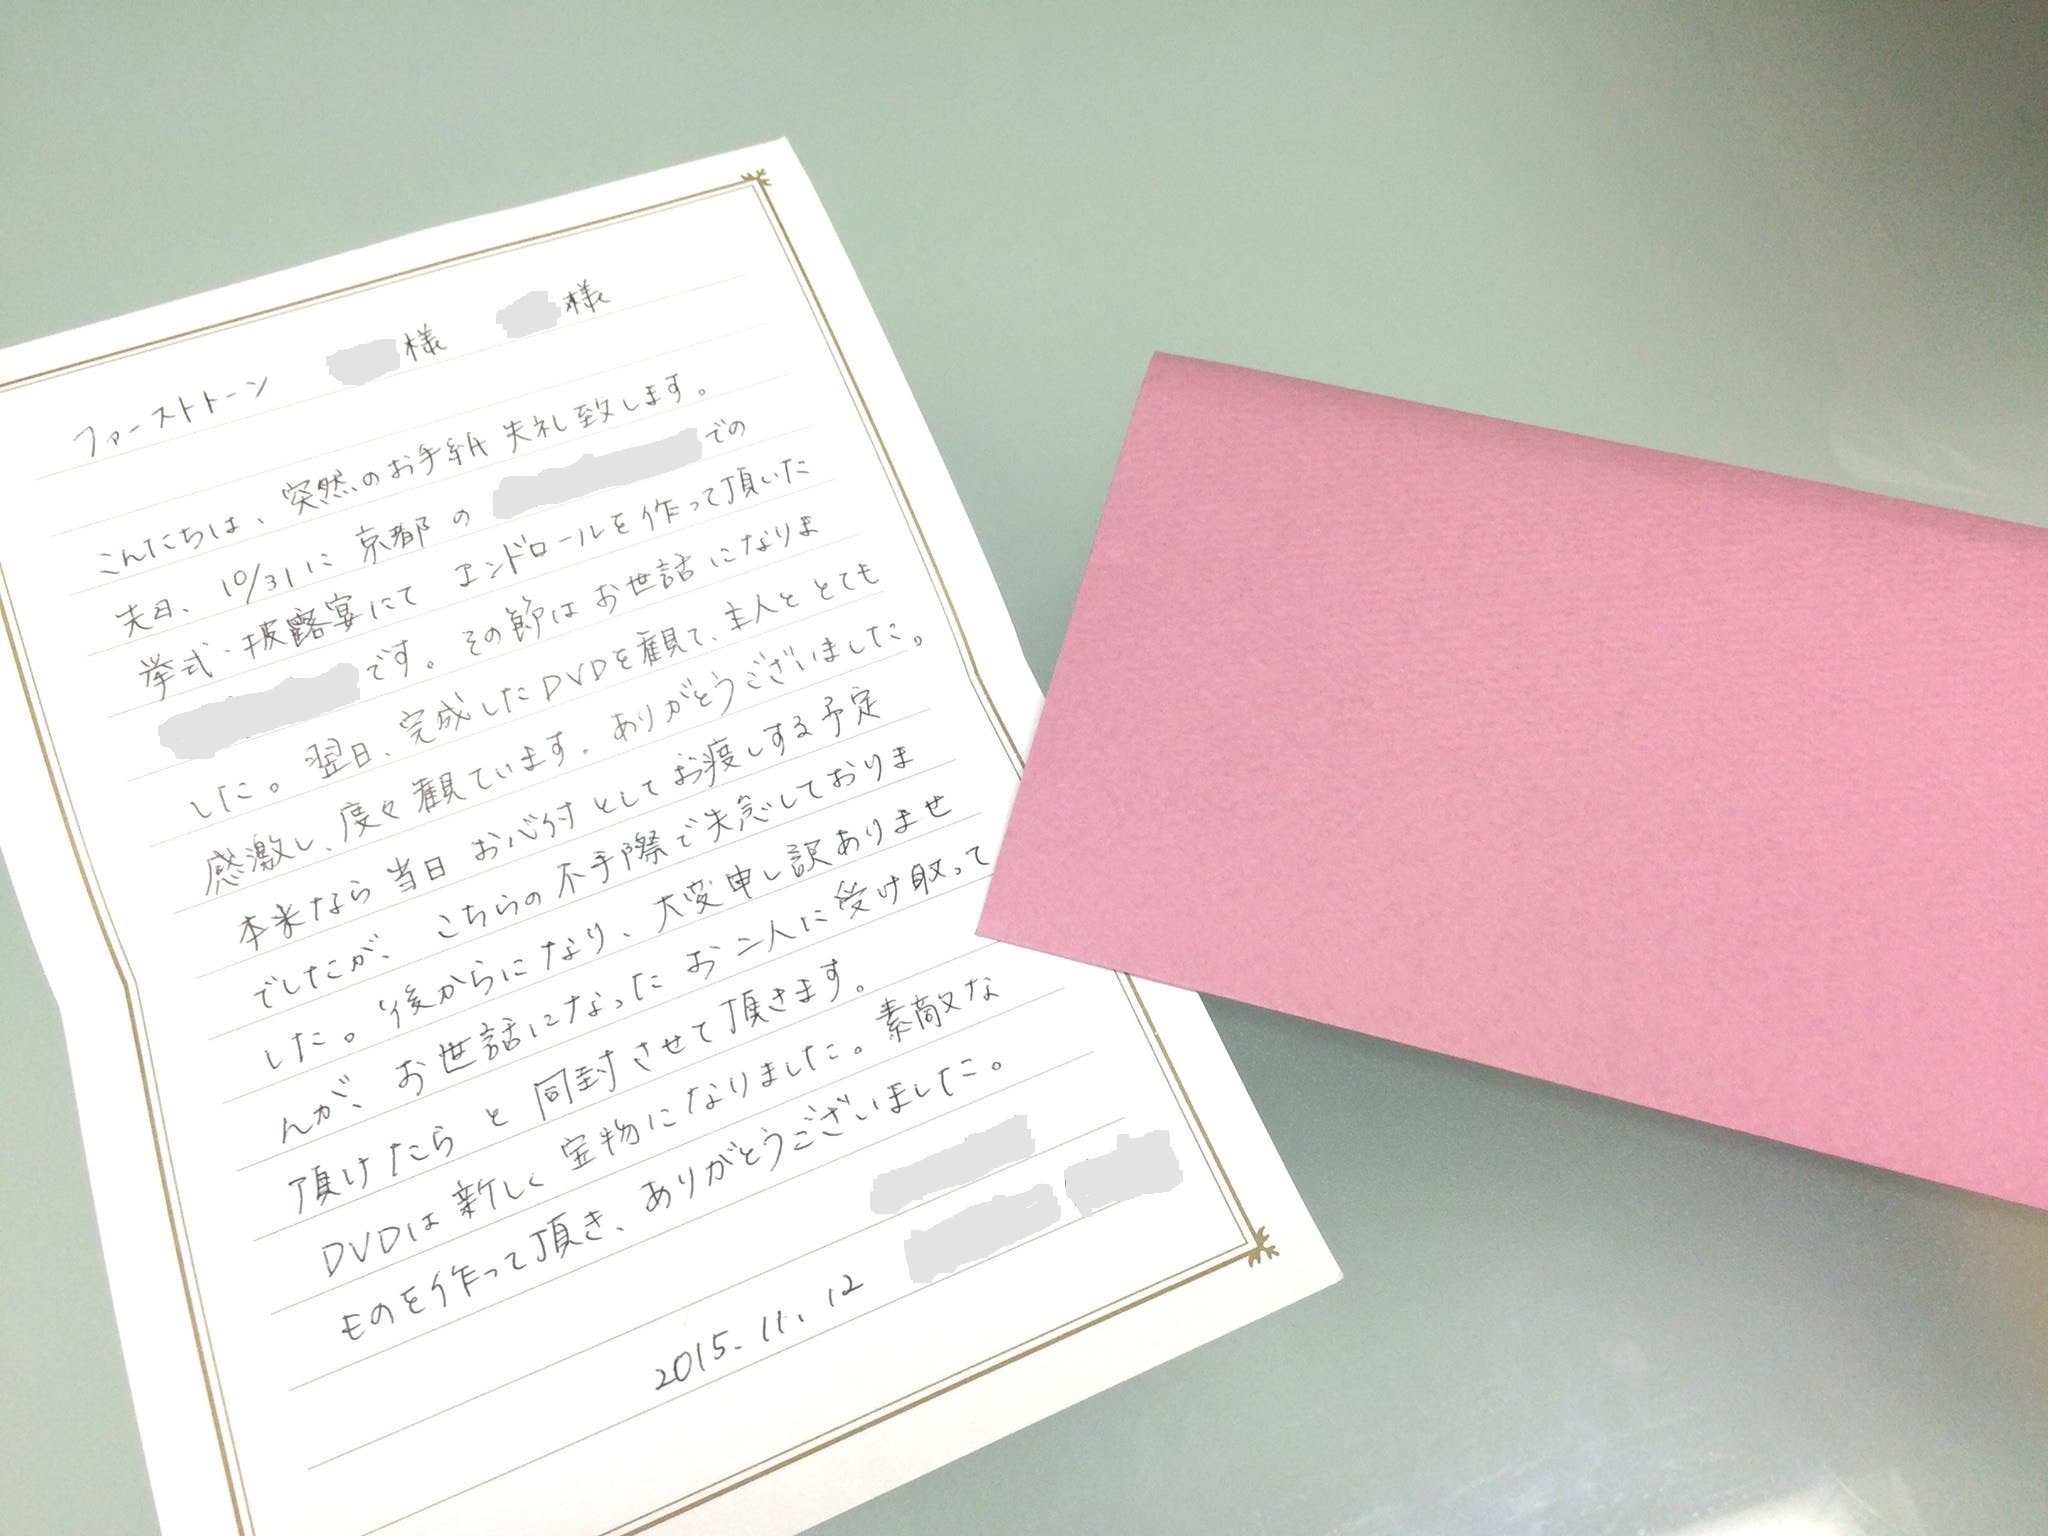 ファーストトーン 様 様
こんにちは、突然のお手紙失礼致します。
先日、10/31に京都の での
挙式・披露宴にてエンドロールを作って頂いた
です。その節はお世話になりま
した。翌日、完成したDVDを観て、主人ととても
感激し、度々観ています。ありがとうございました。
本来なら当日お心付としてお渡しする予定
でしたが、こちらの不手際で失念しておりま
した。後からになり、大変申し訳ありませ
んが、お世話になったお二人に受け取って
頂けたらと同封させて頂きます。
DVDは新しく宝物になりました。素敵な
ものを作って頂き、ありがとうございました。
2015.11.12